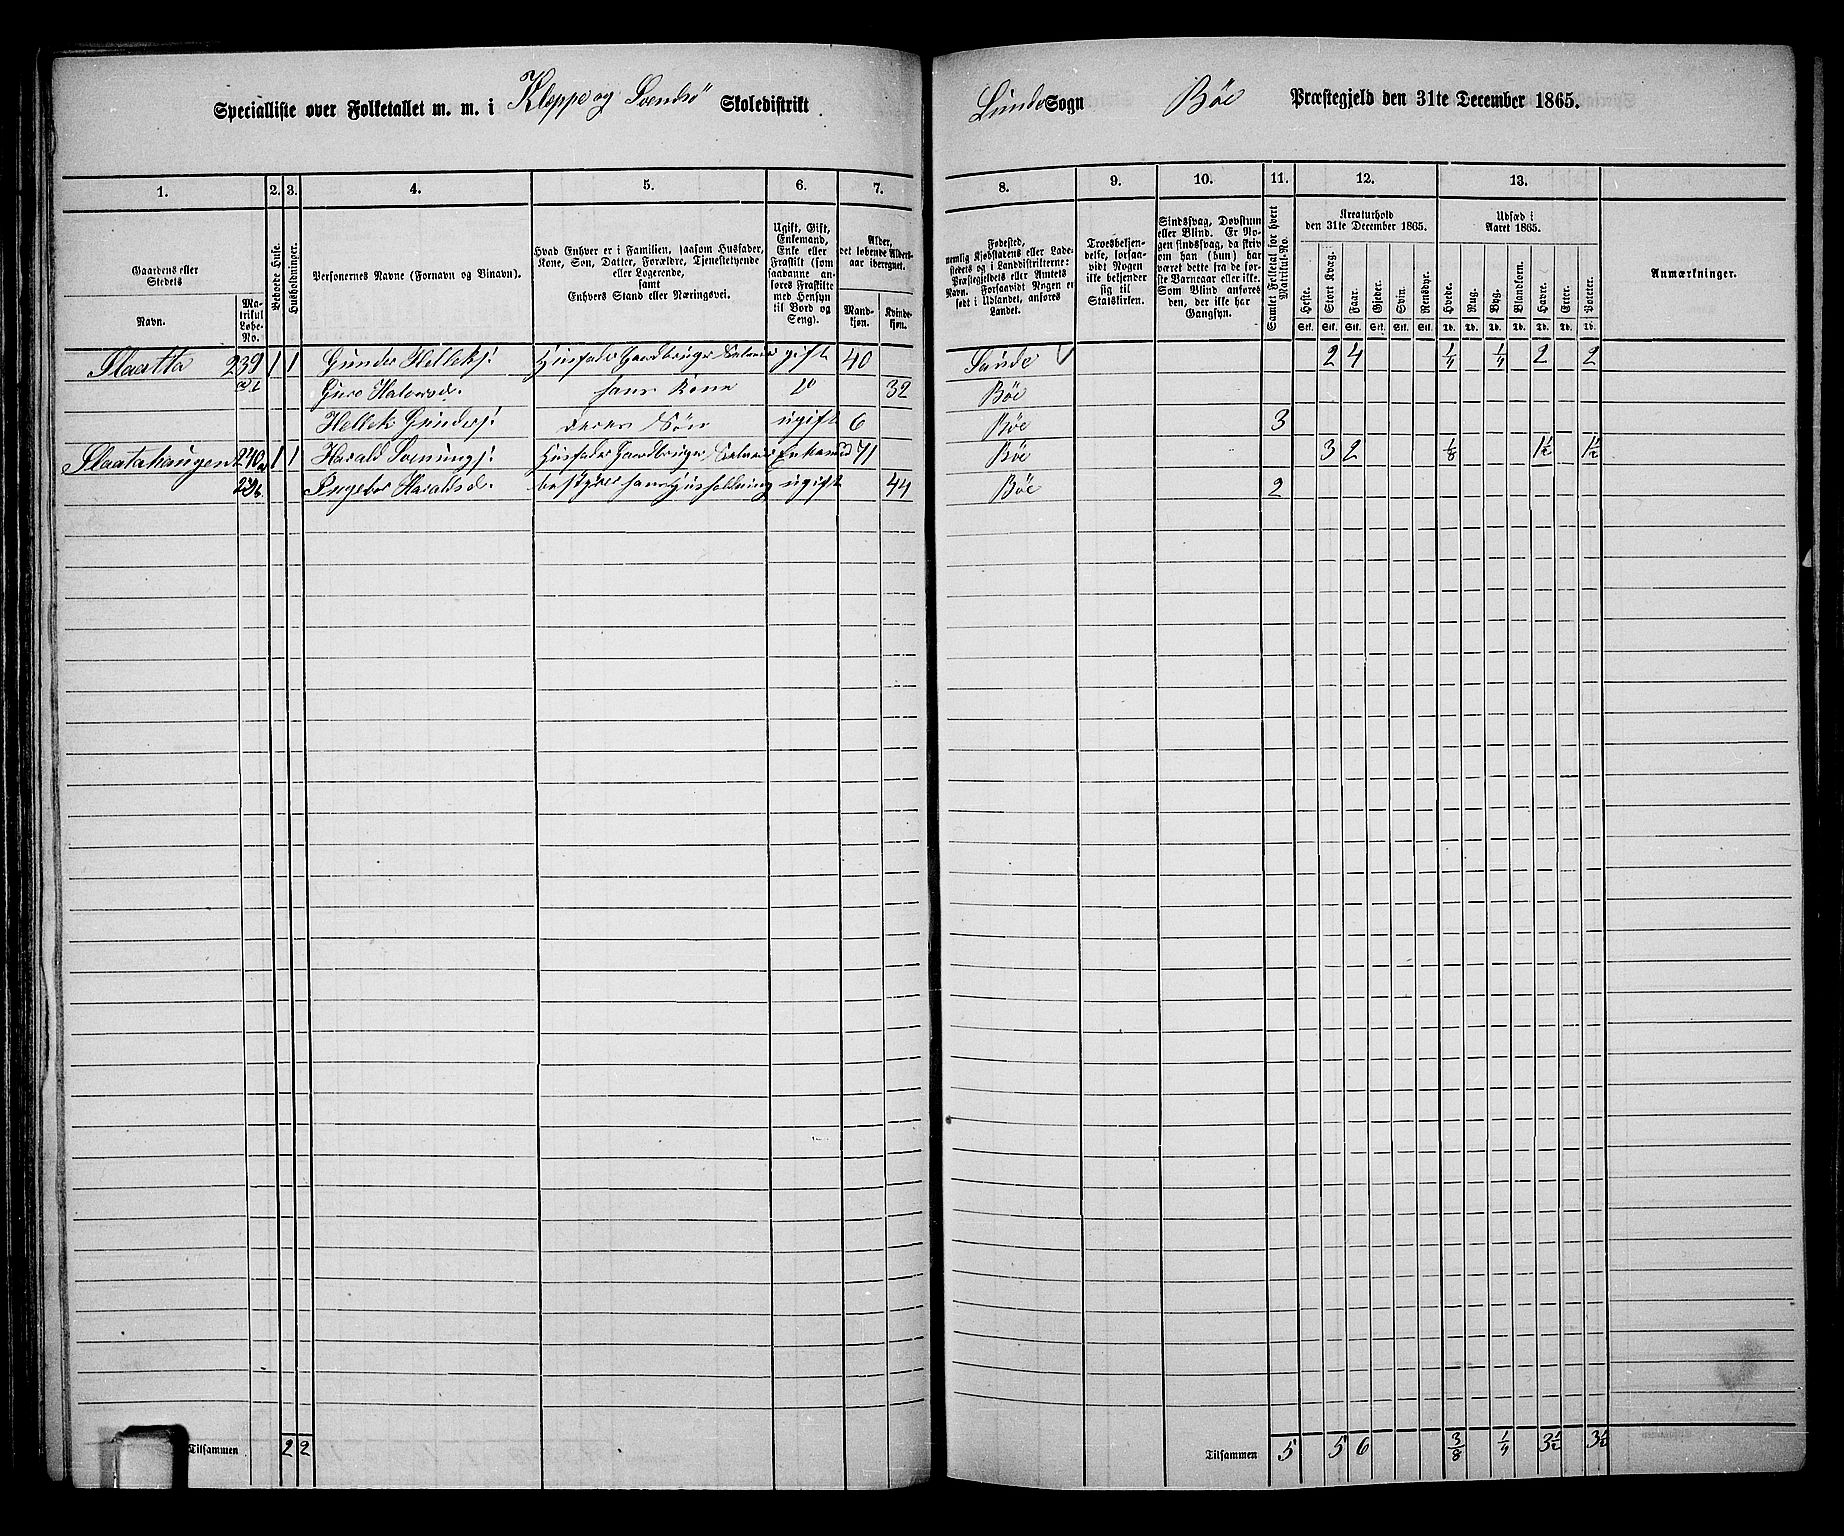 Specialliste over Folketallet m. m. i Kleppe og Svendsö Skoledistrikt
Lunde Sogn Bøe Præstegjeld den 31te December 1865.
1. 2. 3. 4. 5. 6. 7. 8. 9. 10. 11. 12. 13.
Gaardens eller Stedets
Navn.
Matrikul Løbe-No.
Beboede Huse.
Husholdninger.
Personernes Navne (Fornavn og Tilnavn).
Hvad Enhver er i Familien, saasom Husfader,
Kone, Søn, Datter, Forældre, Tjenestetyende
eller Logerende,
samt
Enhvers Stand eller Næringsvei.
Ugift, Gift,
Enkemand,
Enke eller
Fraskilt (som
saadanne an-
føres Fraskilte
med Hensyn
til Bord og
Seng).
Alder,
det løbende Alders-
aar iberegnet.
Mand-
kjøn.
Kvinde-
kjøn.
Fødested,
nemlig Kjøbstadens eller Lade-
stedets og i Landdistrikterne:
Præstegjeldets eller Amtets
Navn. Forsaavidt Nogen er
født i Udlandet, anføres
Landet.
Troesbekjen-
delse, forsaa-
vidt Nogen
ikke bekjender
sig til
Statskirken.
Sindssvag, Døvstum
eller Blind. Er No-
gen sindssvag, da skriv
om han (hun) har
været dette fra de før-
ste Barneaar eller ikke.
Som Blind anføres
den, der ikke har
Gangsyn.
Samlet Folketal for hvert
Matrikul-No.
Kreaturhold
den 31te December 1865.
Heste. Stort Kvæg. Faar. Gjeder. Svin. Rensdyr.
Stk. Stk. Stk. Stk. Stk. Stk.
Udsæd i
Aaret 1865.
Hvede. Rug. Byg. Blandkorn. Havre. Erter. Poteter.
Td. Td. Td. Td. Td. Td. Td.
Anmærkninger.
Slaatta 239 1 1 Gunder Helleks. Husfader Gaardbruger Selveier gift 40 Lunde 2 4 1/4 1/4 2 2
Gure Halvorsd. hans Kone do 32 Bøe
Hellek Gunders. deres Søn ugift 6 Bøe 3
Slaatahaugen 240a 1 1 Harald Svenungs. Husfader Gaardbruger Selveier Enkemd 71 Bøe 3 2 1/8 1 1/2 1 1/2
Ingebor Haraldsd. bestyrer hans Husholdning ugift 44 Bøe 2
Tilsammen 2 2
Tilsammen 5 5 6 3/8 1/4 3 1/2 3 1/2